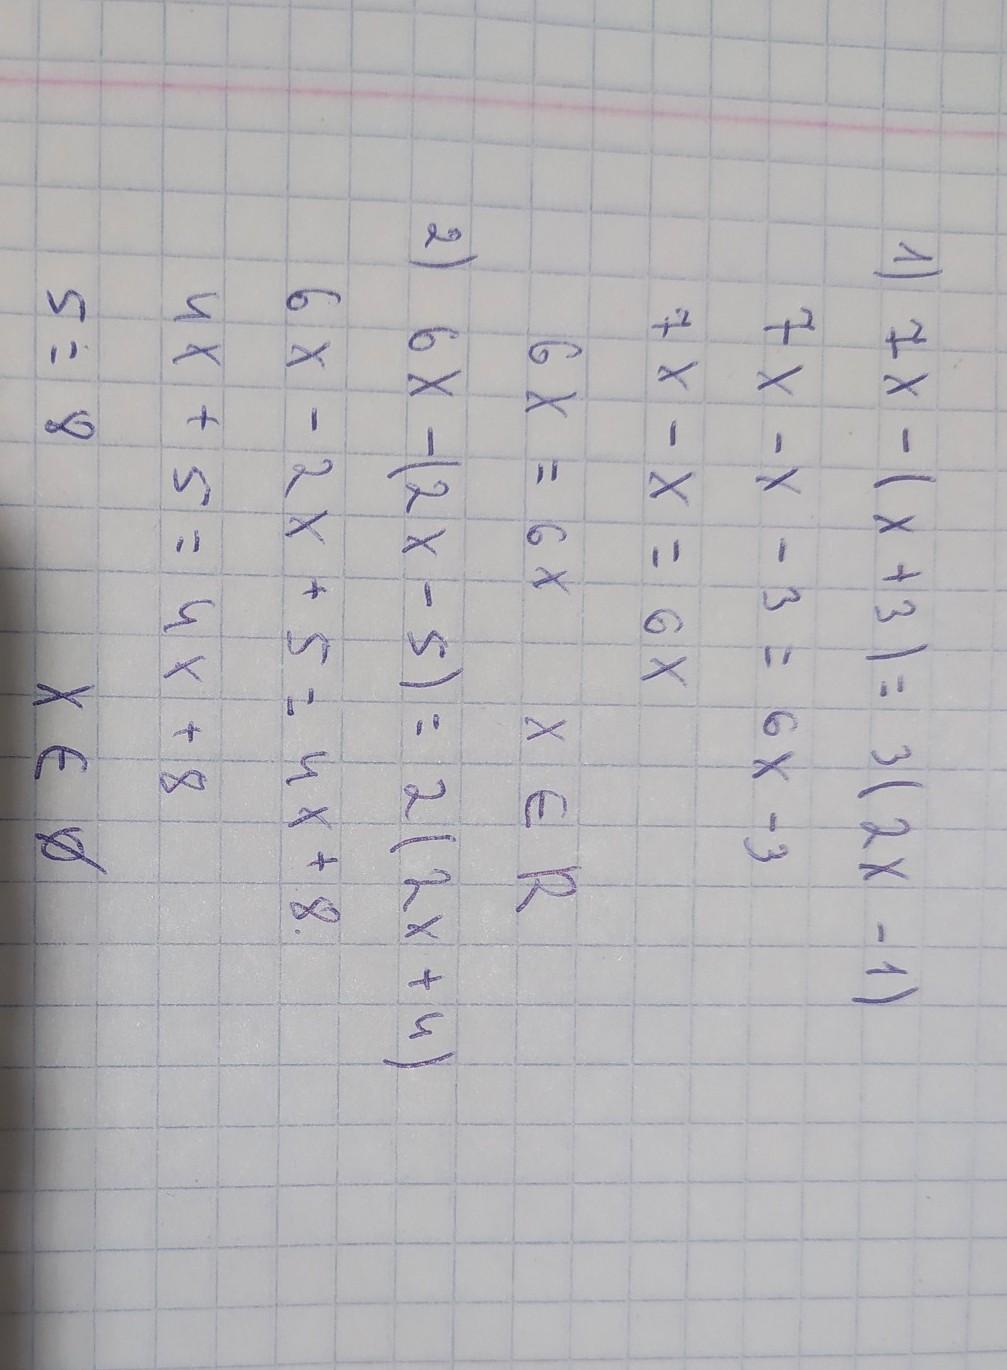 1) 7x - (x + 3) = 3(2x - 1)
7x - x - 3 = 6x - 3
7x - x = 6x
6x = 6x x ∈ R
2) 6x - (2x - 5) = 2(2x + 4)
6x - 2x + 5 = 4x + 8.
4x + 5 = 4x + 8
5 = 8 x ∈ ∅